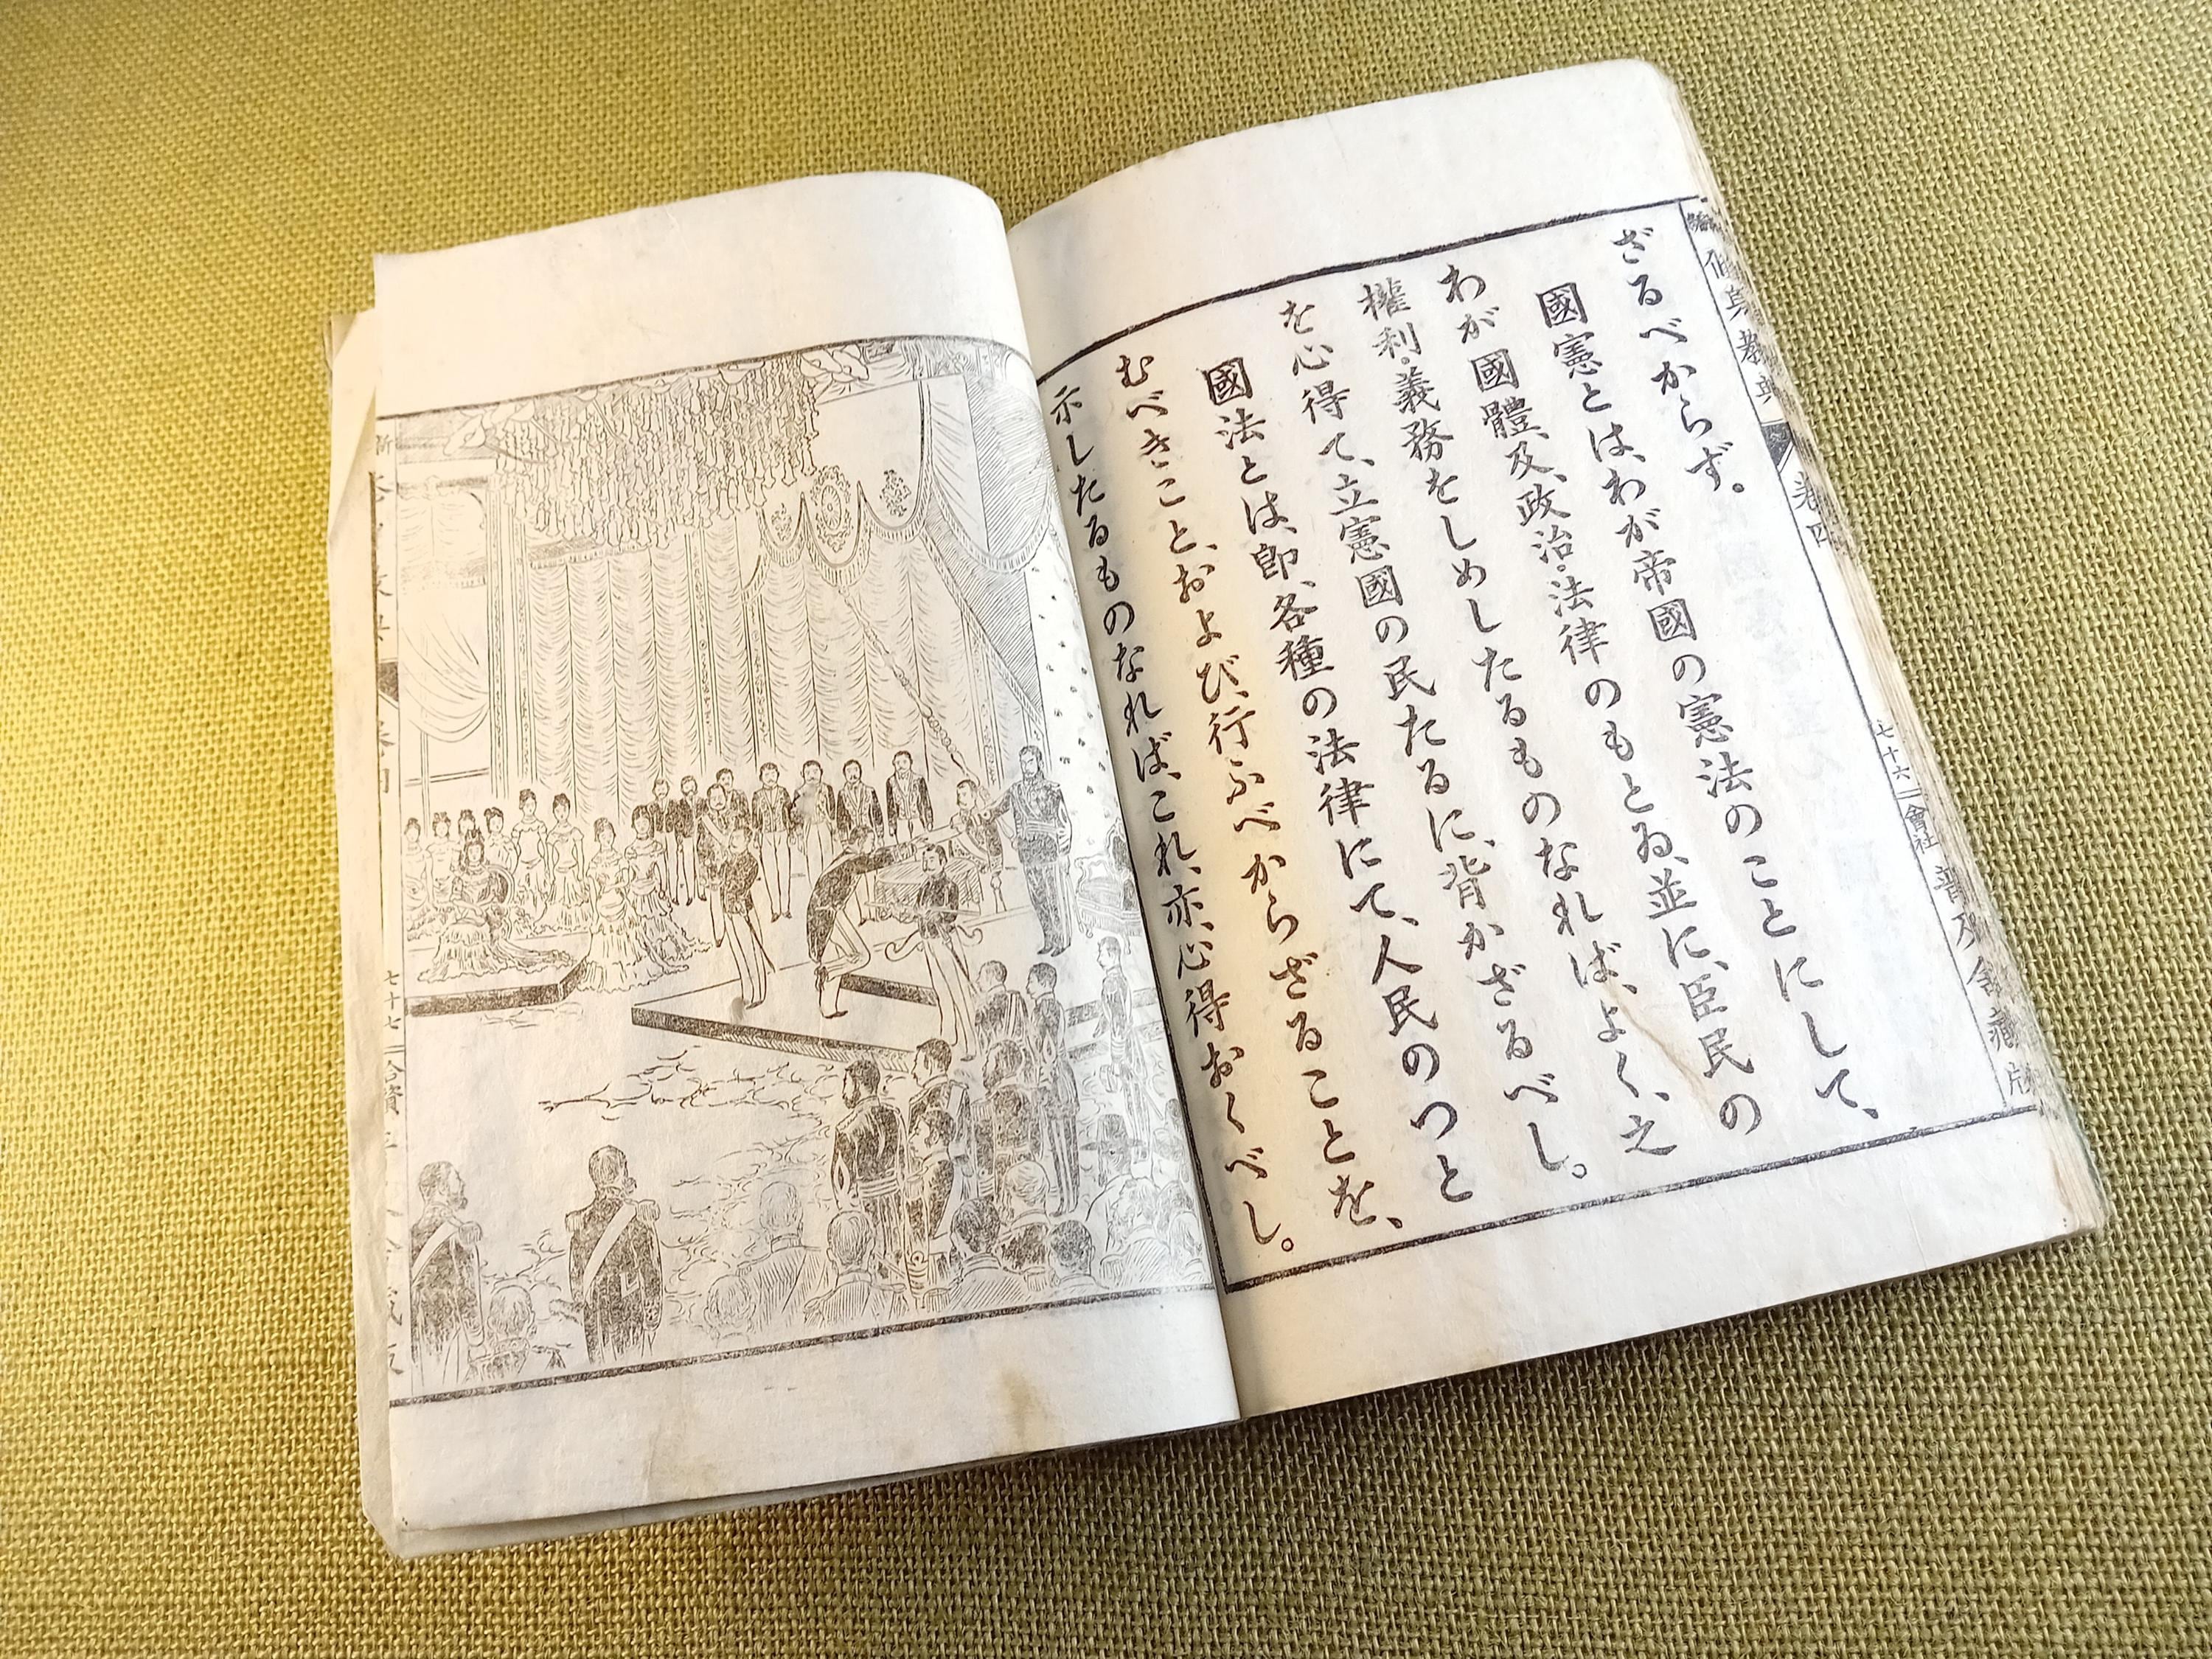 ざるべからず。
國憲とは、わが帝國の憲法のことにして、
わが國體、及、政治・法律のもとゐ、並に、臣民の
權利・義務をしめしたるものなれば、よく、之
を心得て、立憲國の民たるに、背かざるべし。
國法とは、即、各種の法律にて、人民のつと
むべきこと、および、行ふべからざることを、
示したるものなれば、これ、亦、心得おくべし。
修身教典
卷四
七十六
會社
普及舍藏版
新
七十七